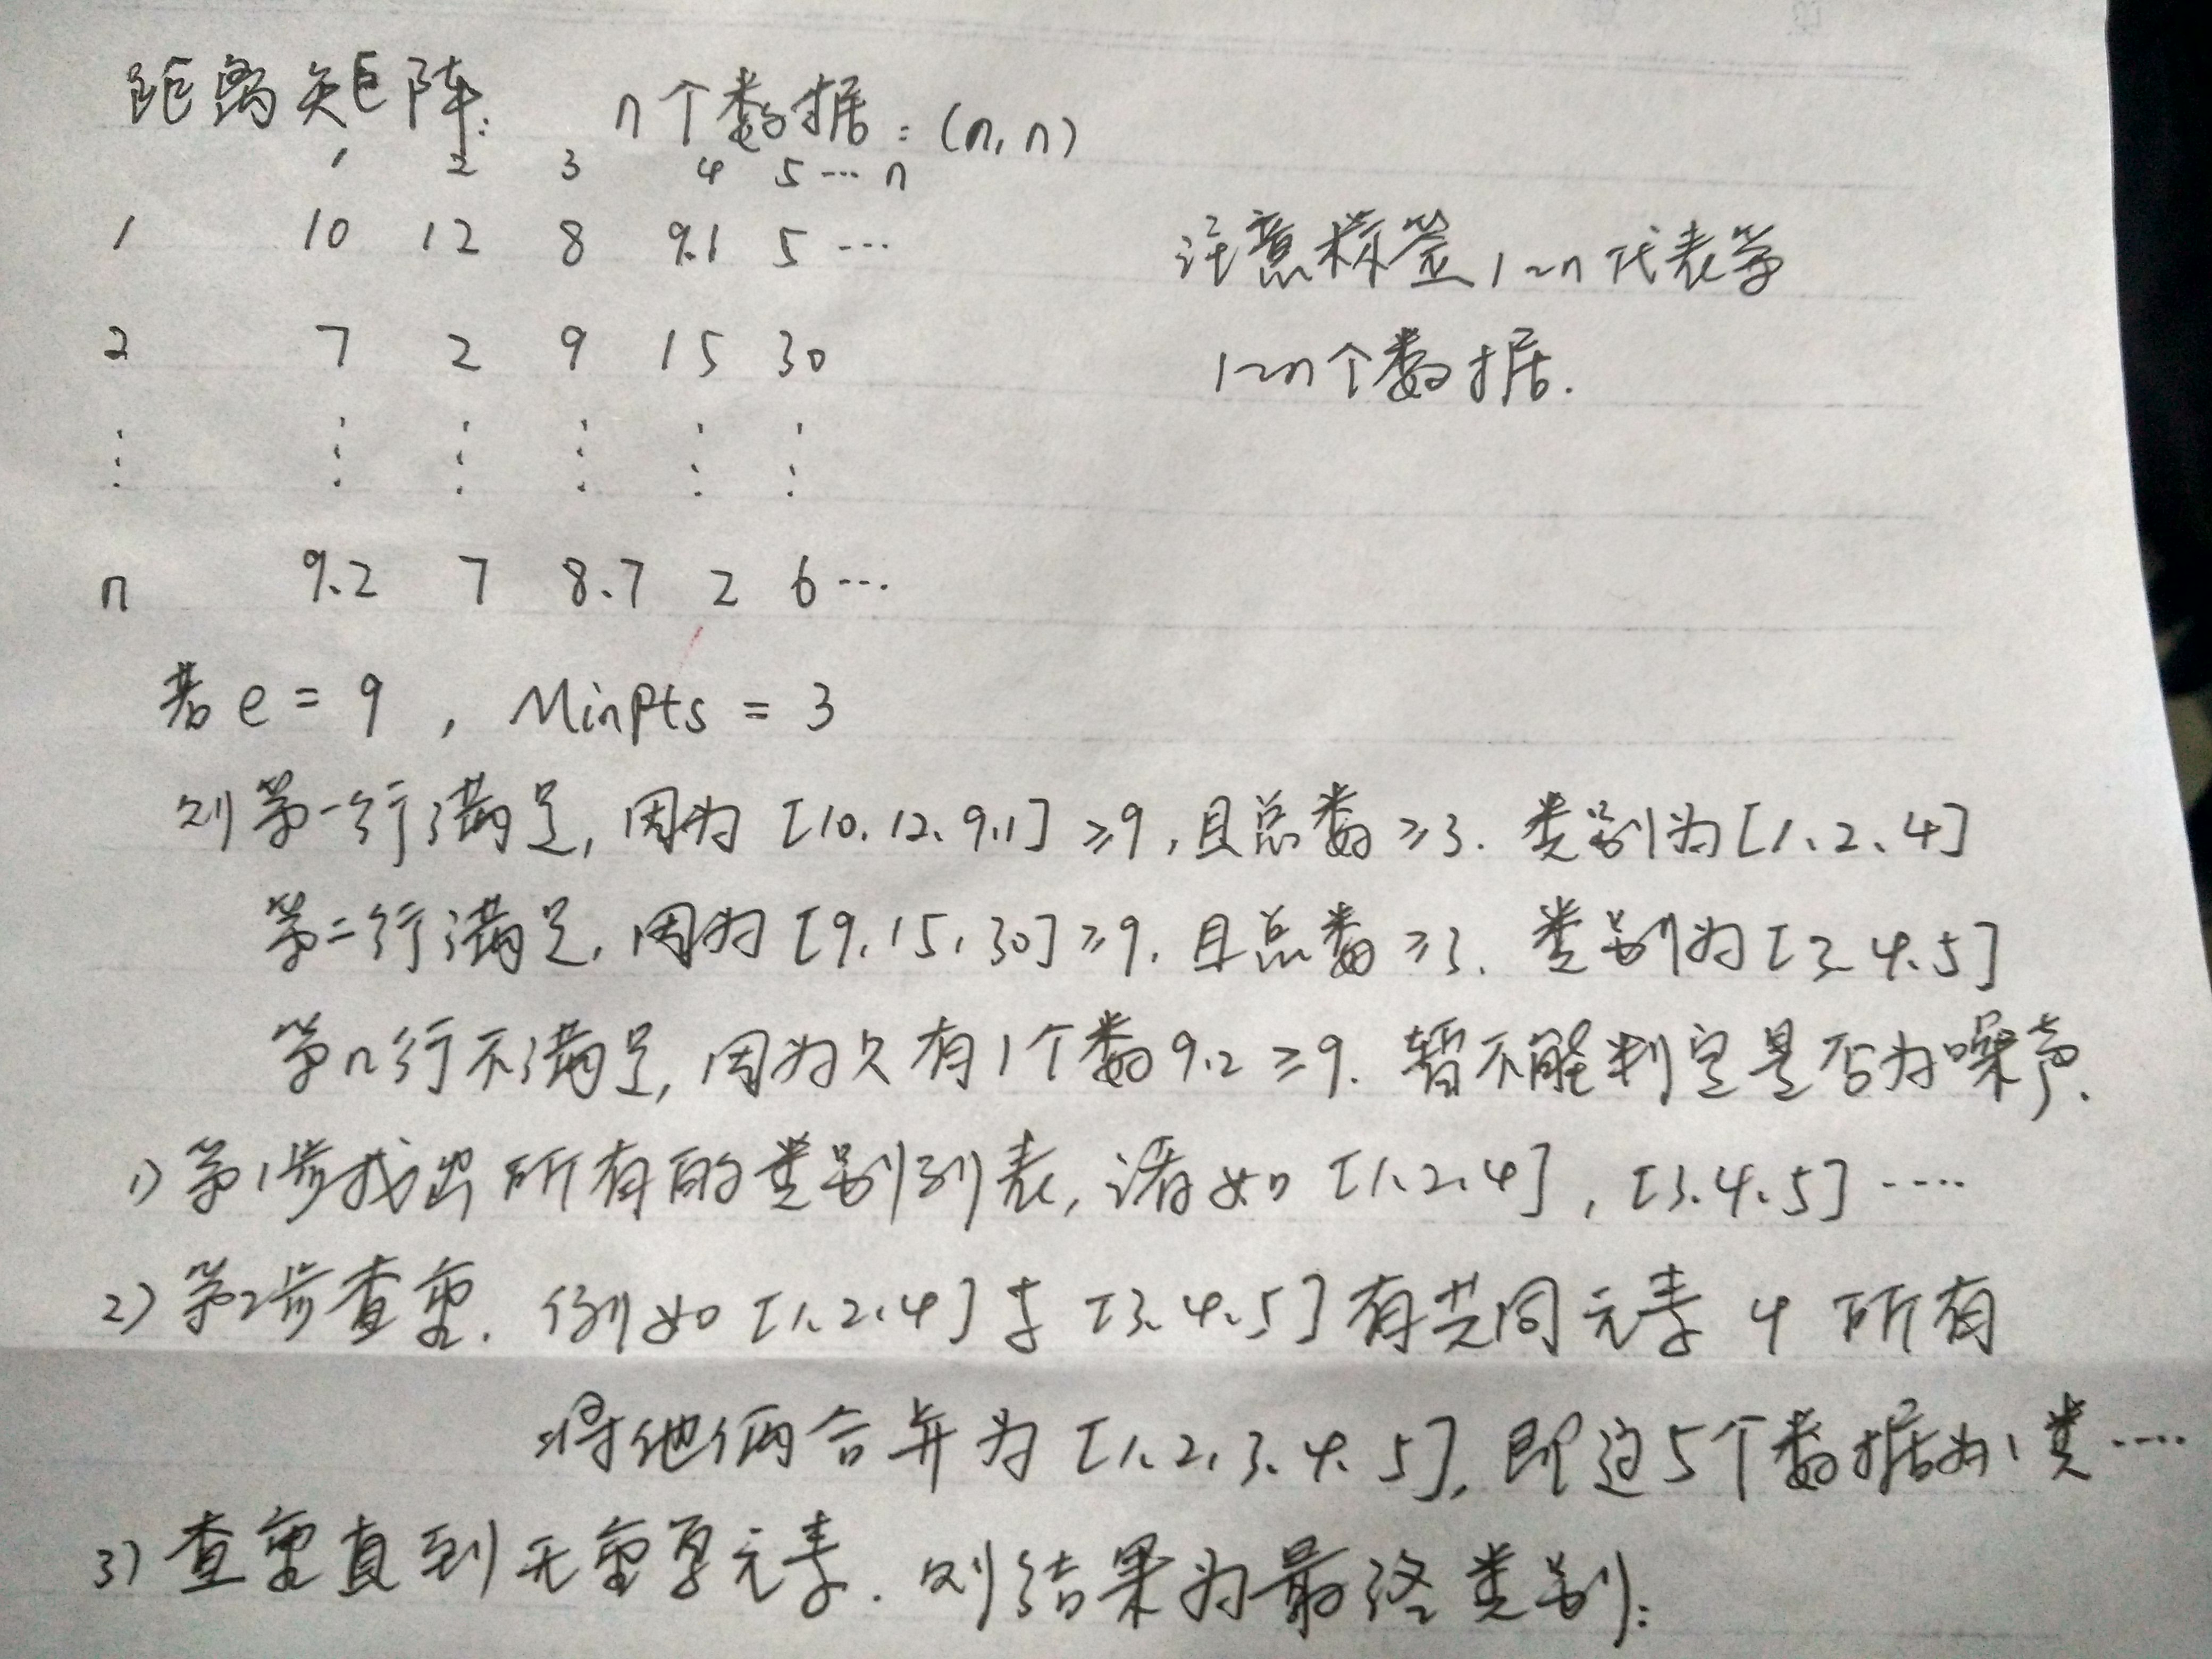 距离矩阵: n个数据:(n,n)
1 2 3 4 5 … n
1 10 12 8 9.1 5 …
注意标签1~n代表第
2 7 2 9 15 30
1~n个数据.
⋮ ⋮ ⋮ ⋮ ⋮ ⋮
n 9.2 7 8.7 2 6 …
若 e = 9 , MinPts = 3
则第一行满足, 因为 [10、12、9.1] ≥9 ,且总数 ≥3. 类别为[1、2、4]
第二行满足, 因为 [9, 15, 30] ≥9. 且总数 ≥3. 类别为[3、4、5]
第n行不满足, 因为只有1个数9.2 ≥9. 暂不能判定是否为噪声.
1) 第1步找出所有的类别列表, 诸如 [1、2、4] , [3、4、5] ····
2) 第2步查重. 例如 [1、2、4] 与 [3、4、5] 有共同元素 4 所有
将他俩合并为 [1、2、3、4、5], 即这5个数据为1类 ····
3) 查重直到无重复元素. 则结果为最终类别: